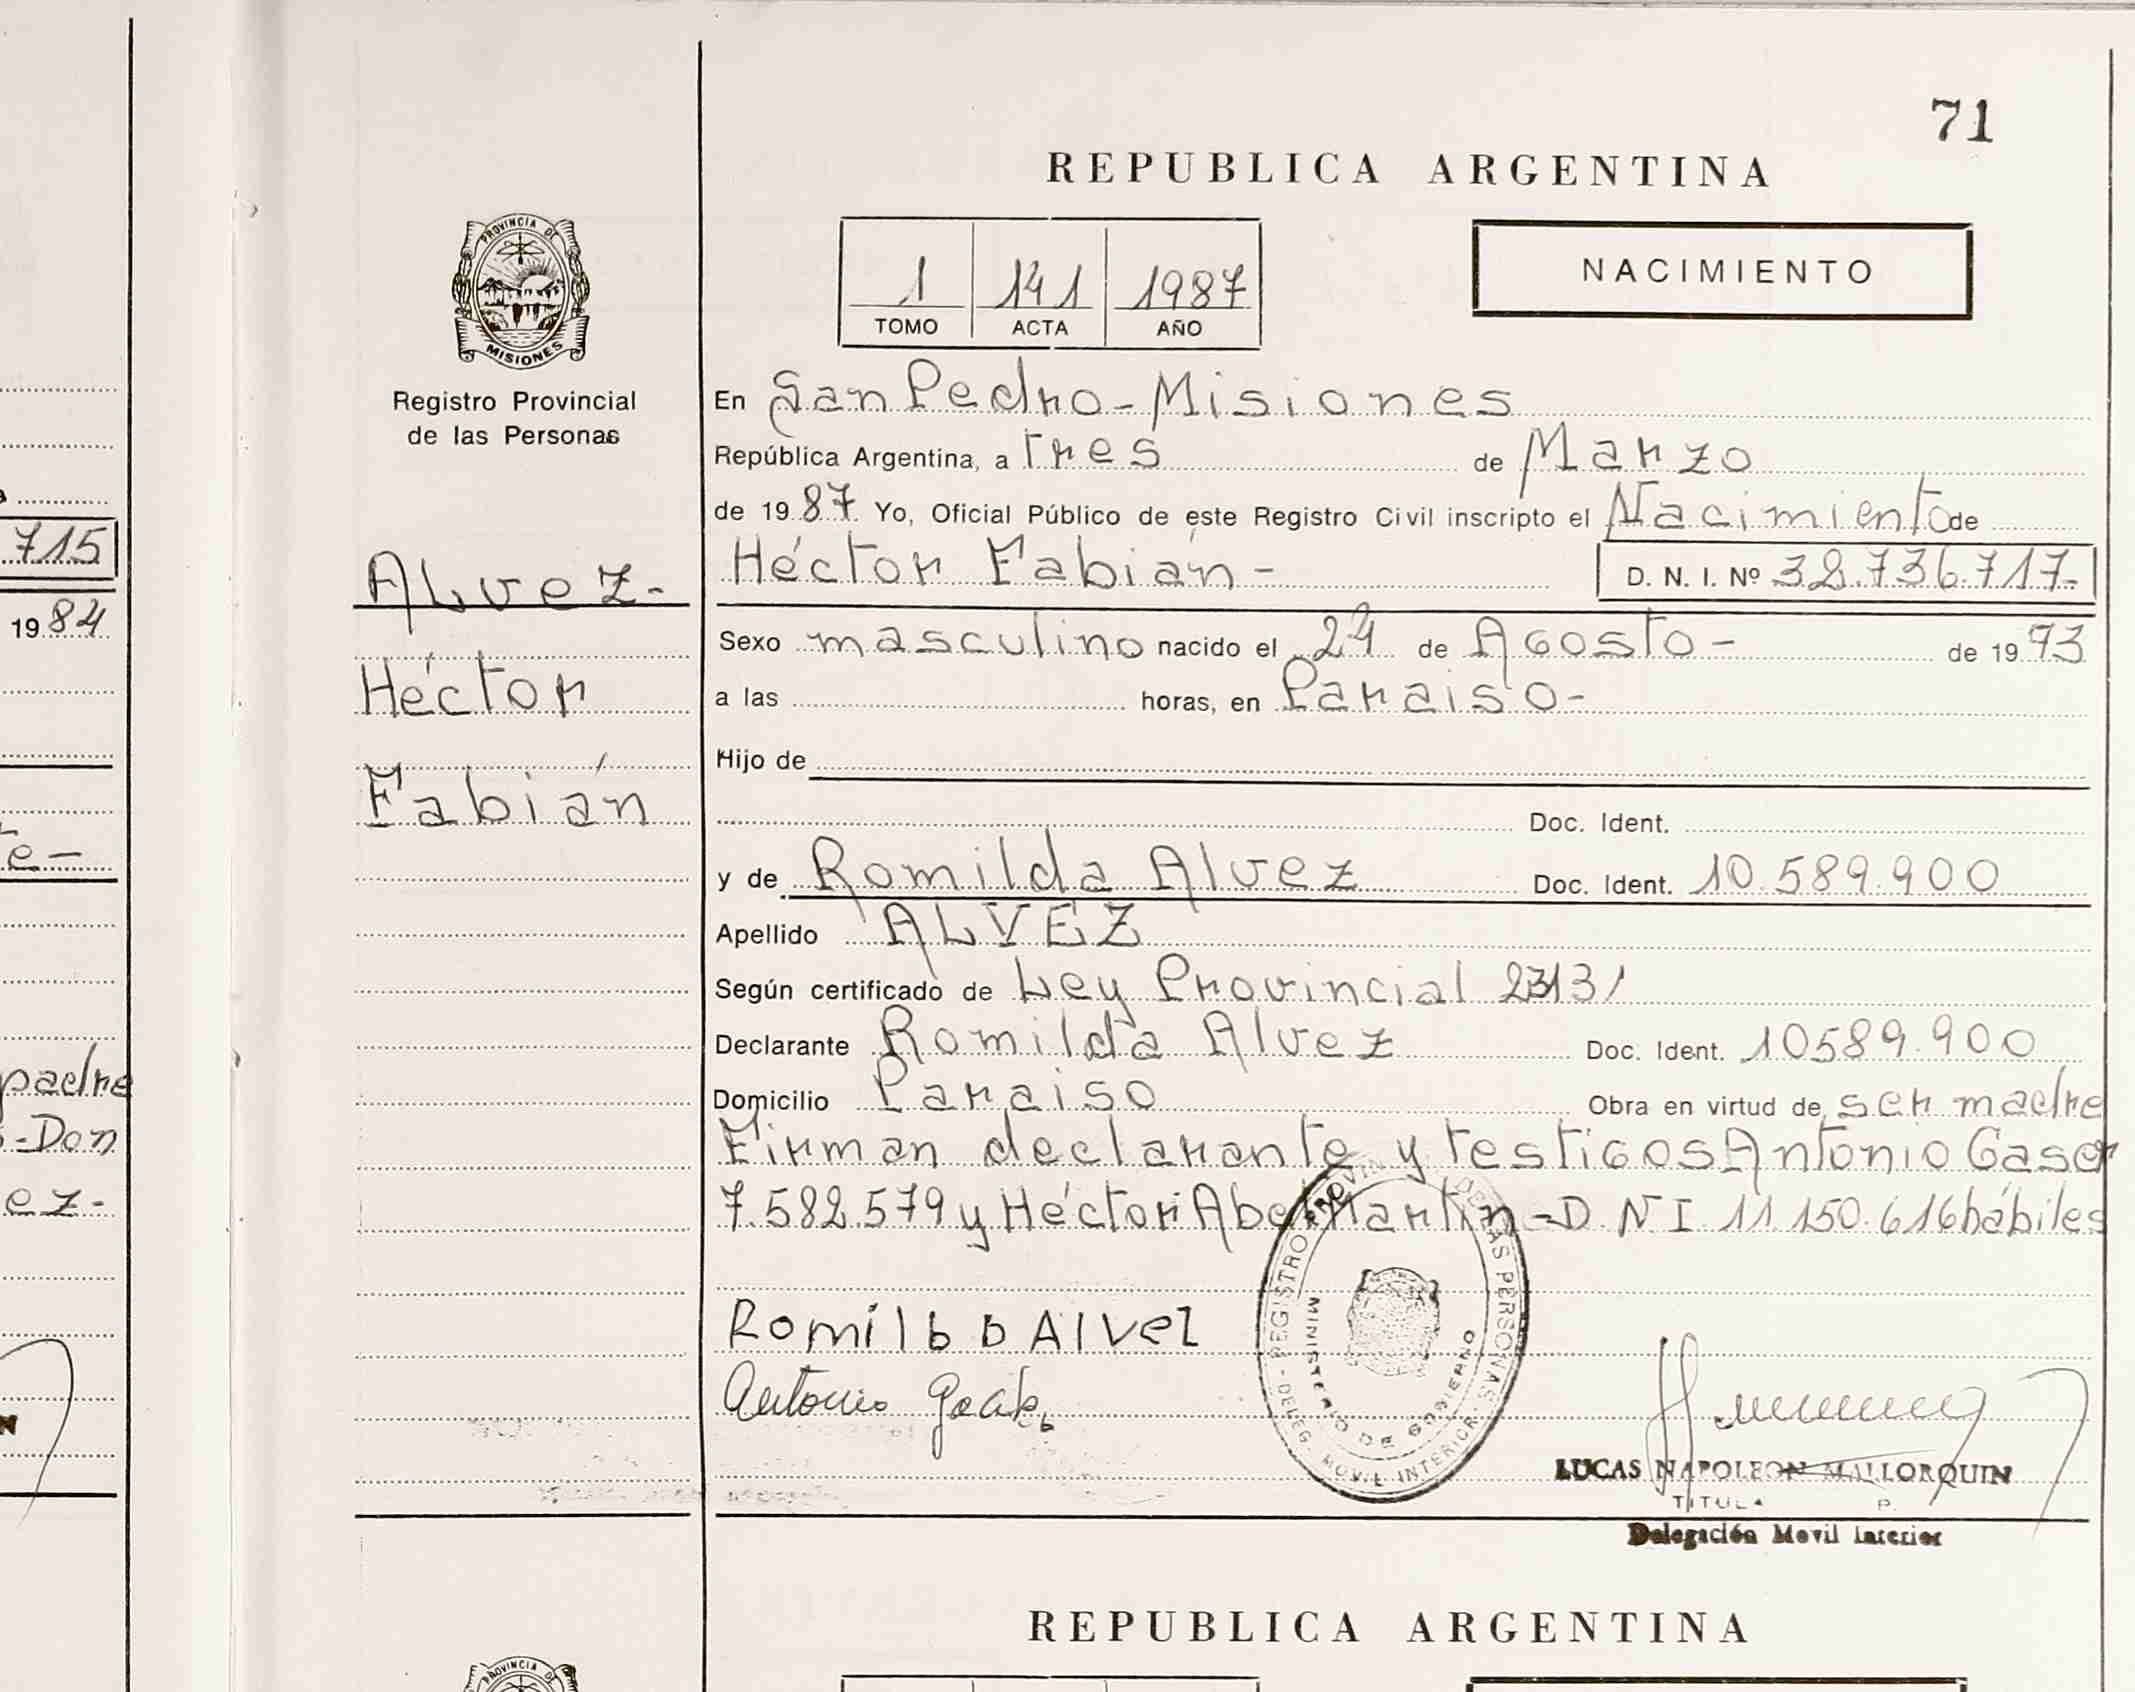 71
REPUBLICA ARGENTINA
PROVINCIA DE
MISIONES
Registro Provincial
de las Personas
1 141 1987
TOMO ACTA AÑO
NACIMIENTO
En San Pedro - Misiones
República Argentina, a tres de Marzo
de 1987 Yo, Oficial Público de este Registro Civil inscripto el Nacimiento de
Alvez-
Héctor
Fabián
Héctor Fabián - D. N. I. Nº 32.736.717-
Sexo masculino nacido el 24 de Agosto - de 1973
a las horas, en Paraiso-
Hijo de
Doc. Ident.
y de Romilda Alvez Doc. Ident. 10.589.900
Apellido ALVEZ
Según certificado de Ley Provincial 2313
Declarante Romilda Alvez Doc. Ident. 10589.900
Domicilio Paraiso Obra en virtud de ser madre
Firman declarante y testigos Antonio
7.582.579 y Héctor Abel Martin - D N I 11 150.616 hábiles
Romilbo Alvez
Antonio
REGISTRO PROVIN DE LAS PERSONAS
MINISTERIO DE GOBIERNO
- DELEG. MOVIL INTERIOR -
LUCAS NAPOLEON MALLORQUIN
TITULA P.
Delegación Movil Interior
REPUBLICA ARGENTINA
PROVINCIA DE
715
1984
e-
padre
-Don
ez-
N